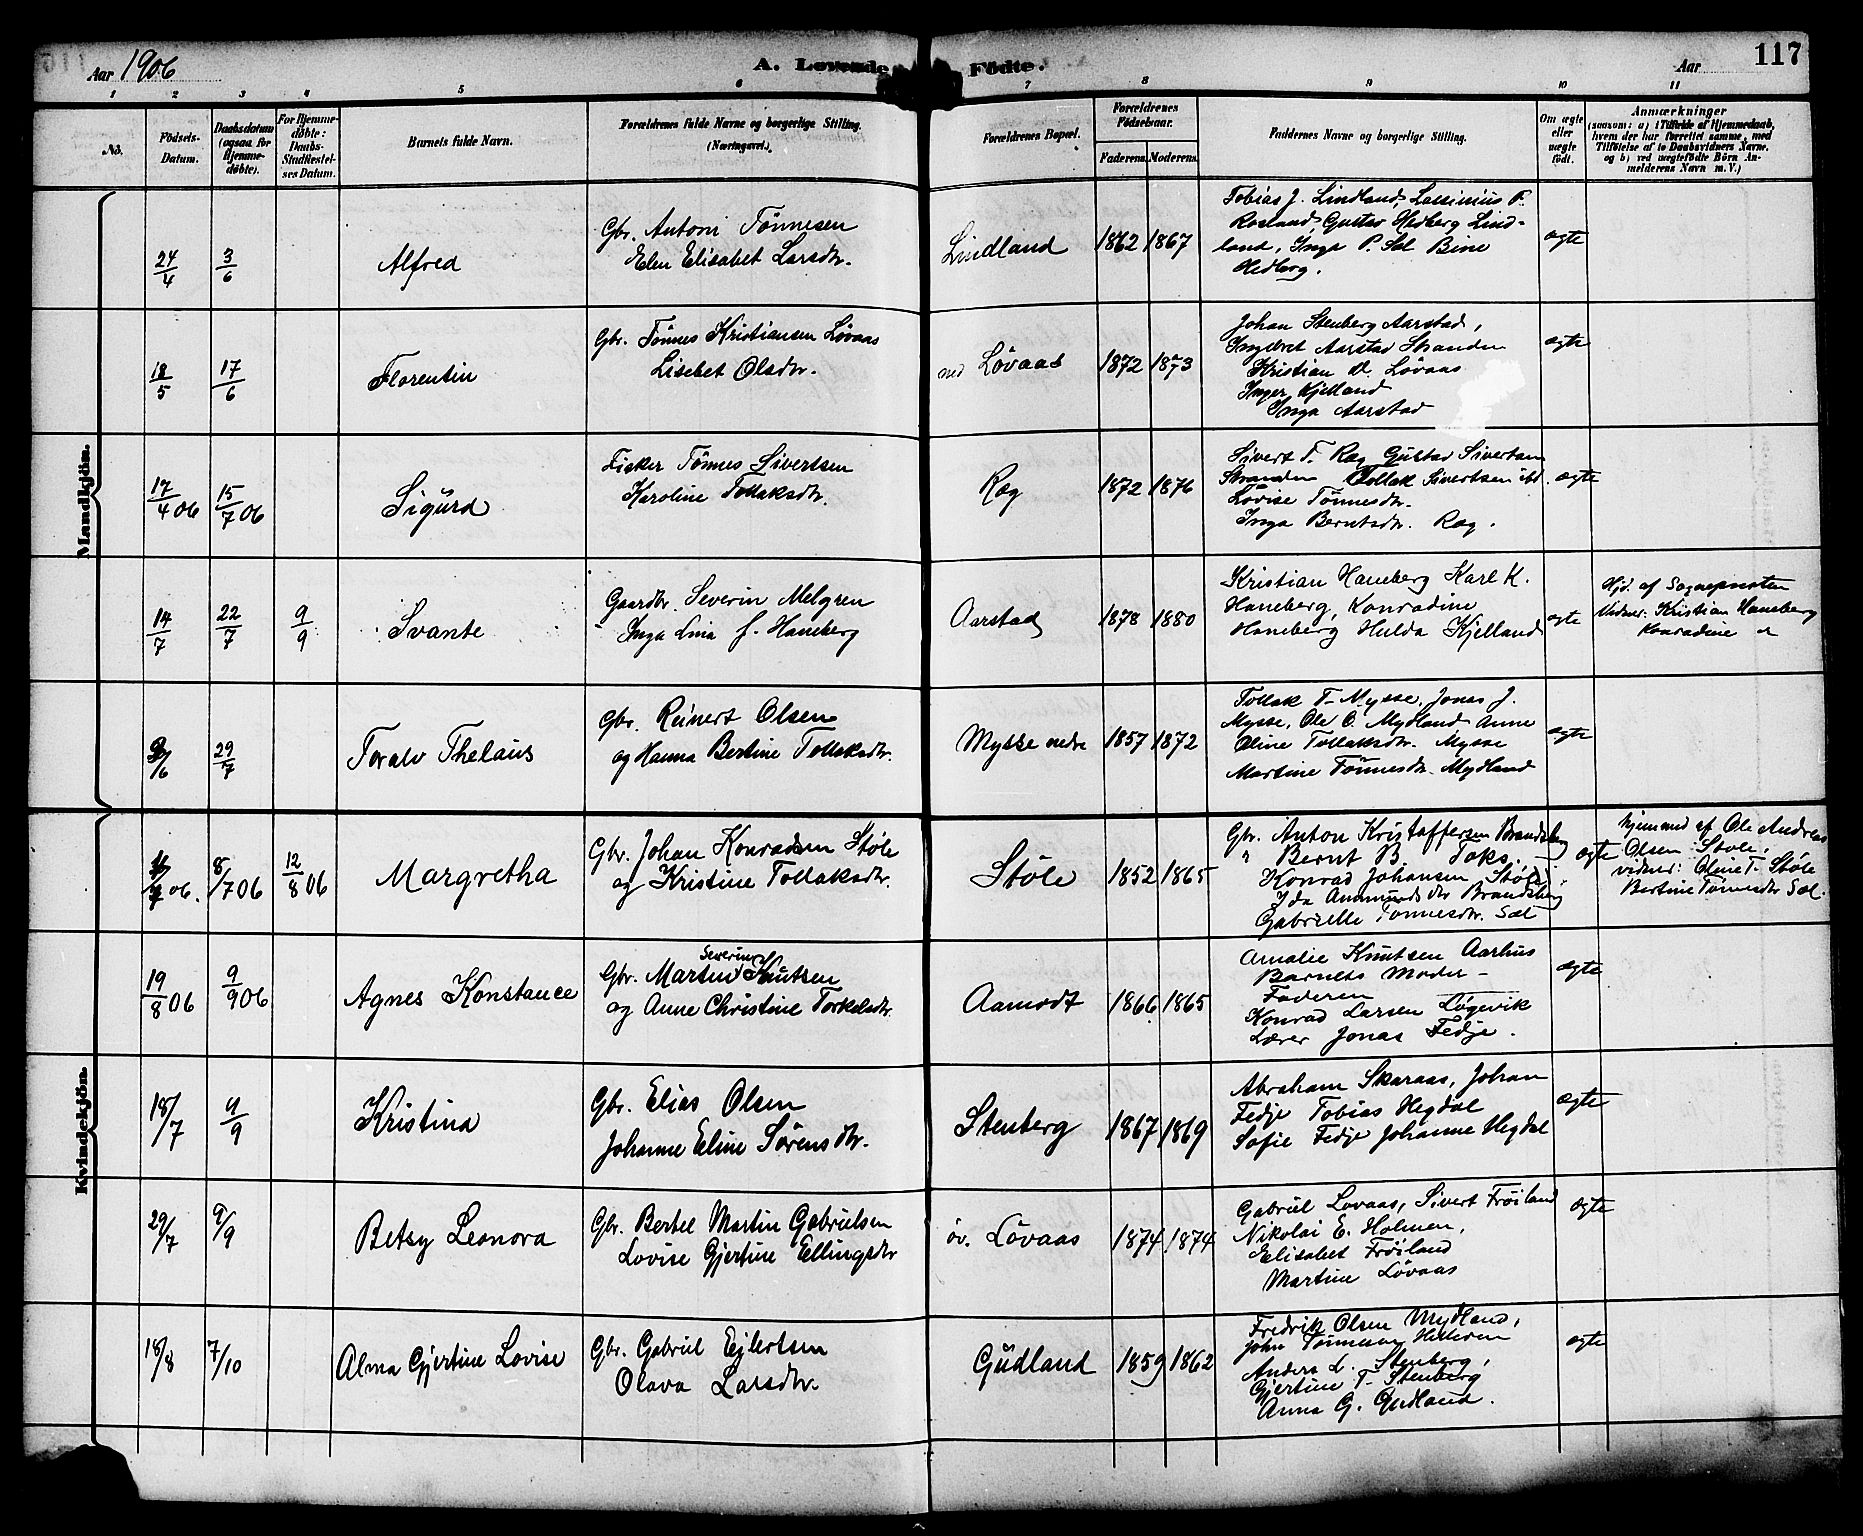 Aar 1906
A. Levende Födte.
Aar
117
1 2 3 4 5 6 7 8 9 10 11
No.
Födsels-
Datum.
Daabsdatum
(ogsaa for
Hjemme-
døbte).
For Hjemme-
døbte:
Daabs-
Stadfæstel-
ses Datum.
Barnets fulde Navn.
Forældrenes fulde Navne og borgerlige Stilling.
(Næringsvei.)
Forældrenes Bopæl.
Forældrenes
Födselsaar.
Faderens. Moderens.
Faddernes Navne og borgerlige Stilling.
Om ægte
eller
uægte
født.
Anmærkninger
(saasom: a) i Tilfælde af Hjemmedaab,
hvem der har forrettet samme, med
Tilföielse af to Daabsvidners Navne,
og b) ved uægtefødte Börn An-
melderens Navn m. V.)
Mandkjön.
24/4 3/6 Alfred
Gbr. Antoni Tönnesen
Elen Elisabet Larsdtr.
Lindland 1862 1867
Tobias J. Lindland, Lassinius P.
Rosland, Gustav Hedberg Lind-
land, Inga P. Sel Bine
Hedberg.
ægte
18/5 17/6 Florentin
Gbr. Tönnes Kristiansen Lövaas
Lisebet Olsdtr.
ned Lövaas 1872 1873
Johan Stenberg Aarstad,
Ingebret Aarstad Stranden
Kristian O. Lövaas
Inger Kjelland
Inga Aarstad
ægte
17/4 06 15/7 06 Sigurd
Fisker Tönnes Sivertsen
Karoline Tollaksdtr.
Ræg 1872 1876
Sivert T. Ræg Gustav Sivertsen
Stranden Tollak Sivertsen ibd.
Lovise Tönnesdtr.
Inga Berntsdtr. Ræg.
ægte
14/7 22/7 9/9 Svante
Gaardbr. Severin Melgren
Inga Lina f. Haneberg
Aarstad 1878 1880
Kristian Haneberg Karl K.
Haneberg, Konradine
Haneberg Hulda Kjelland
ægte
Hjd. af Sognepresten
Vidner: Kristian Haneberg
Konradine "
/6 29/7 Toralv Thelaus
Gbr. Reinert Olsen
og Hanna Bertine Tollaksdtr.
Mysse nedre 1857 1872
Tollak T. Mysse, Jonas J.
Mysse, Ole O. Mydland, Anne
Oline Tollaksdtr. Mysse
Martine Tönnesdtr. Mydland
ægte
Kvindekjön.
06. 8/7 06 12/8 06 Margretha
Gbr. Johan Konradsen Støle
og Kristine Tollaksdtr.
Støle 1852 1865
Gbr. Anton Kristoffersen Brandsberg
" Bernt B. Toks.
Konrad Johansen Støle.
Ida Ammundsdtr Brandsberg
Gabrielle Tönnesdtr. Sæl
ægte
hjemmed af Ole Andreas
Olsen Støle,
vidner: Oline T. Støle
Bertine Tönnesdtr Sæl.
19/8 06 9/9 06 Agnes Konstance
Severin
Gbr. Martin Knutsen
og Anne Christine Torkelsdtr.
Aamodt 1866 1865
Amalie Knutsen Aarhus
Barnets Moder -
Faderen
Konrad Larsen Løgevik
Lærer Jonas Fedje.
ægte
18/7 9/9 Kristina
Gbr. Elias Olsen
Johanne Eline Sörensdtr.
Stenberg 1867 1869
Abraham Skaraas, Johan
Fedje Tobias Hegdal
Sofie Fedje Johanne Hegdal
ægte
29/7 9/9 Betsy Leonora
Gbr. Bertel Martin Gabrielsen
Lovise Gjertine Ellingsdtr
öv. Lövaas 1874 1874
Gabriel Lovaas, Sivert Fröiland
Nikolai E. Holmen,
Elisabet Fröiland
Martine Lövaas
ægte
18/8 7/10 Alma Gjertine Lovise
Gbr. Gabriel Ejlertsen
Olava Larsdtr.
Gudland 1859 1862
Fredrik Olsen Mydland,
John Tönnesen Helleren
Anders L. Stenberg,
Gjertine T. Stenberg
Anna G. Gudland.
ægte